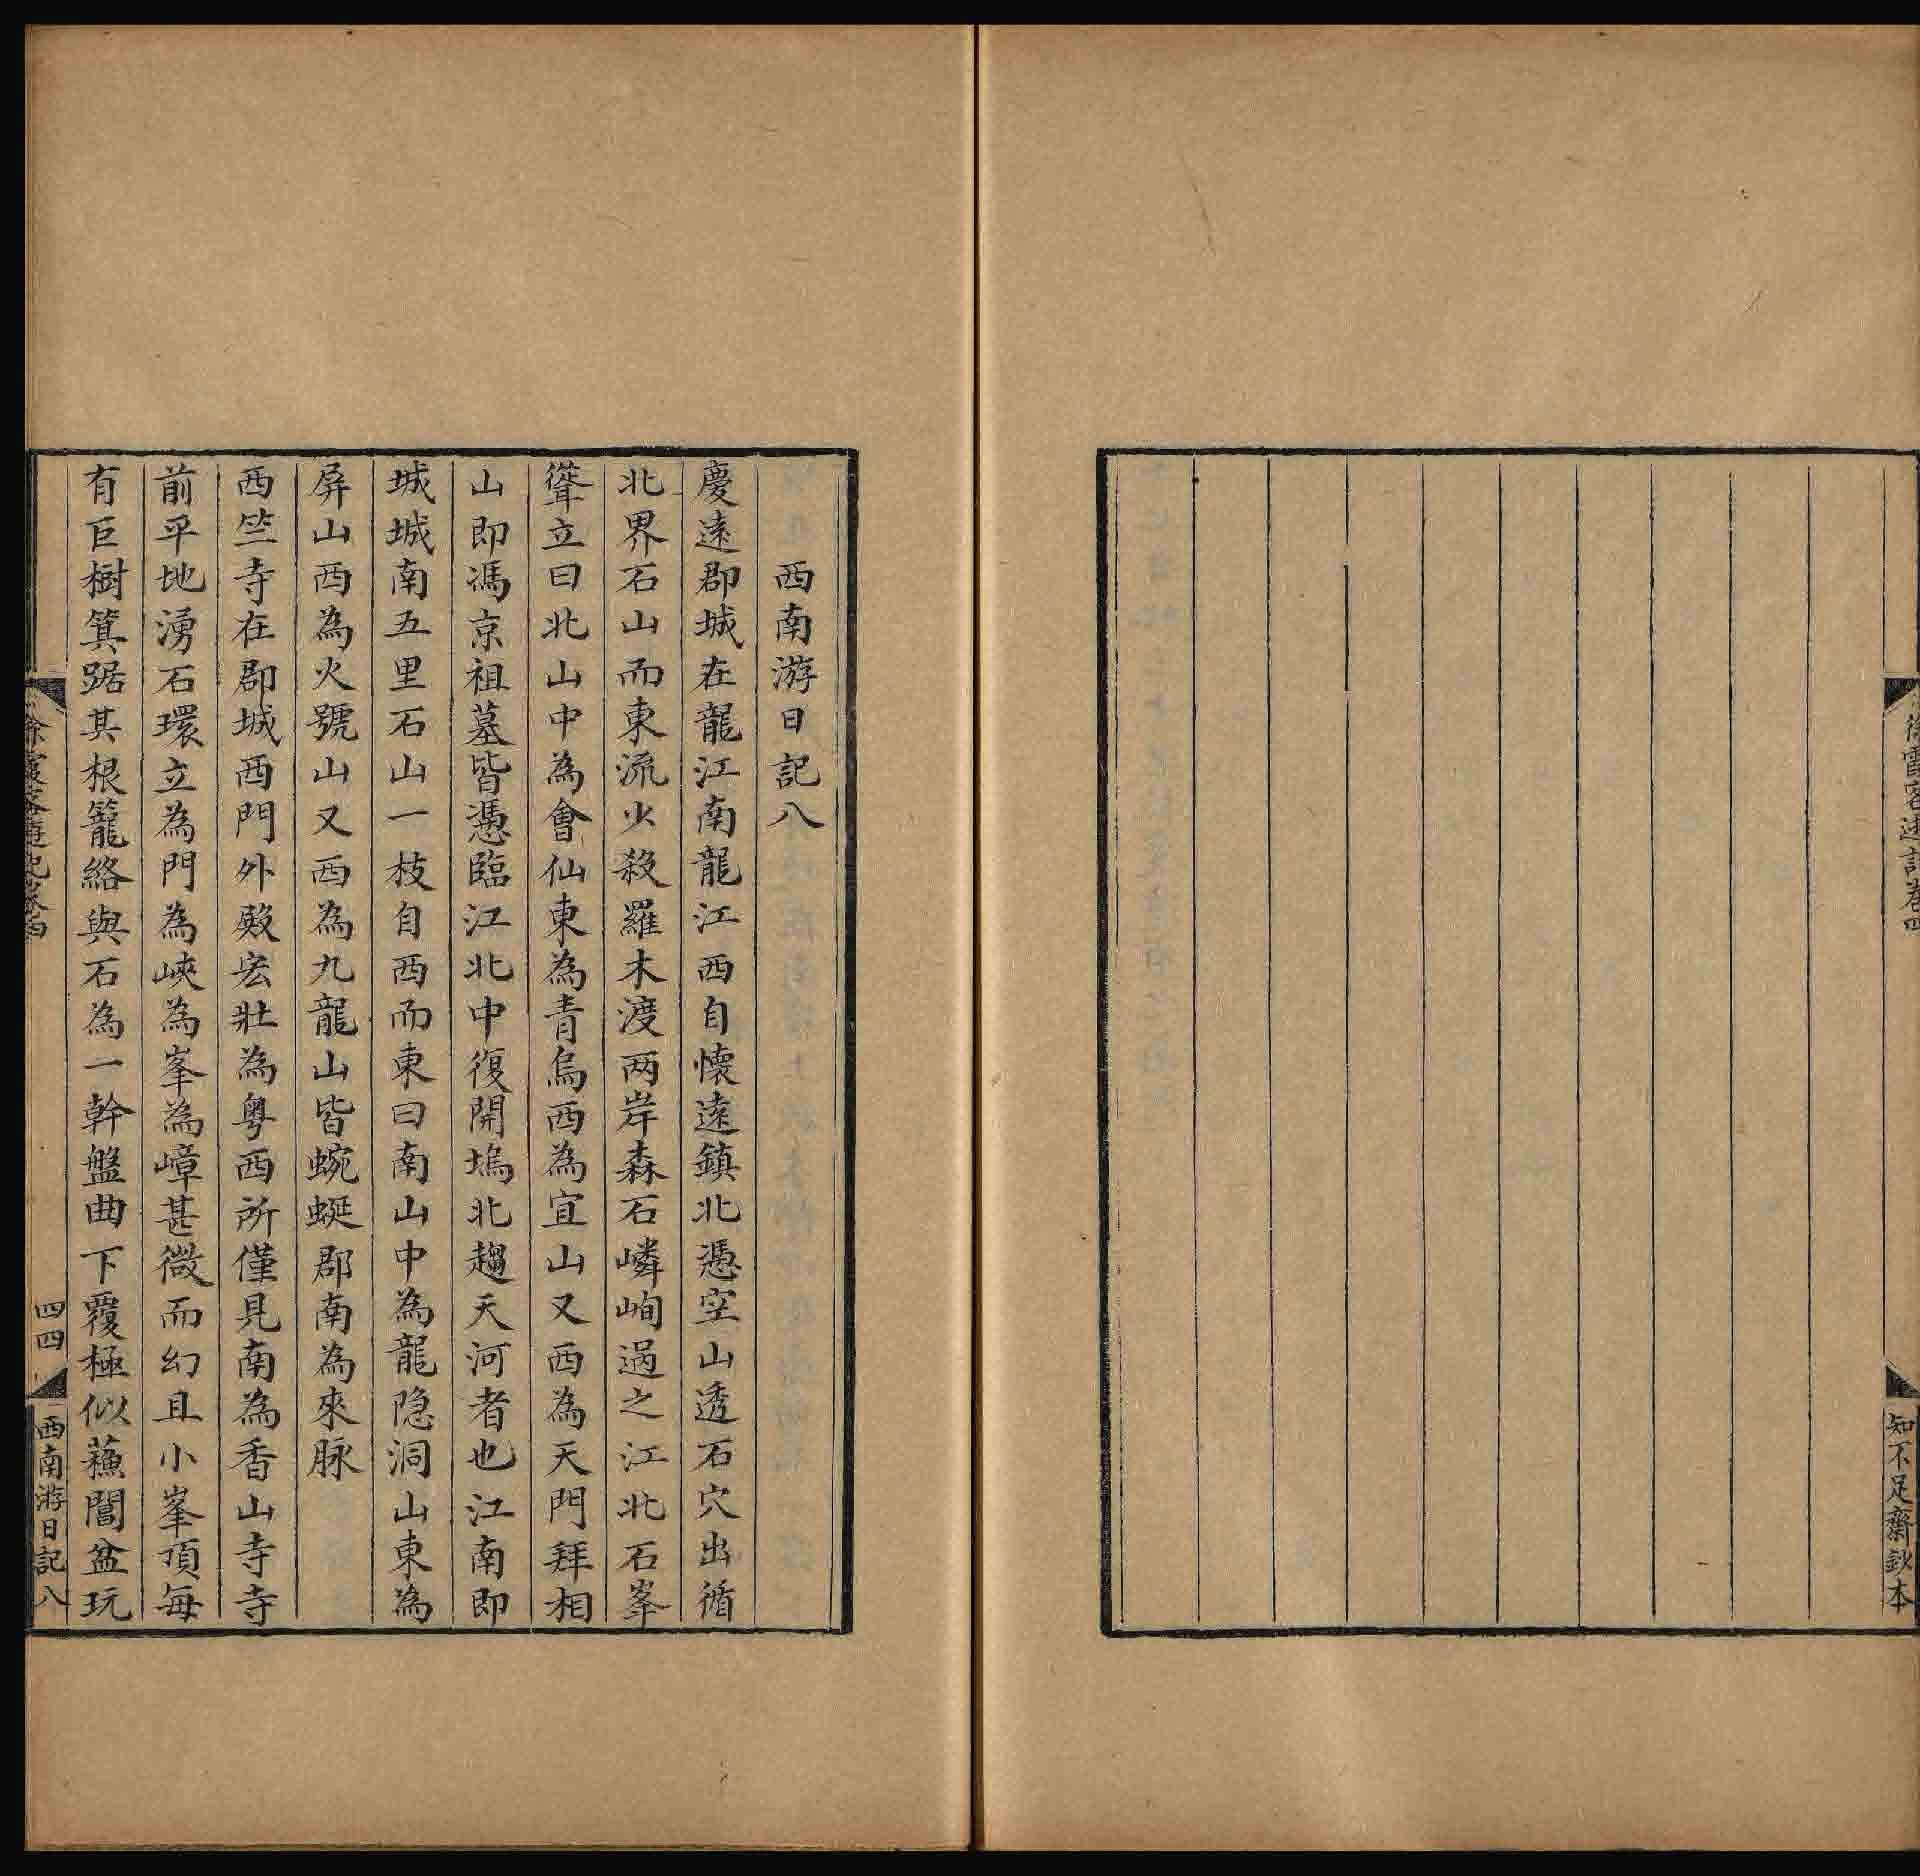 徐霞客遊記卷四
知不足齋鈔本
西南游日記八
慶遠郡城在龍江南龍江西自懷遠鎮北憑空山透石穴出循
北界石山而東流火殺羅木渡两岸森石嶙峋過之江北石峯
聳立曰北山中為會仙東為青鳥西為宜山又西為天門拜相
山即馮京祖墓皆憑臨江北中復開塢北趨天河者也江南即
城城南五里石山一枝自西而東曰南山中為龍隐洞山東為
屏山西為火號山又西為九龍山皆蜿蜒郡南為來脉
西竺寺在郡城西門外殿宏壯為粵西所僅見南為香山寺寺
前平地湧石環立為門為峽為峯為嶂甚微而幻且小峯頂每
有巨樹箕踞其根籠絡與石為一幹盤曲下覆極似蘓閶盆玩
徐霞客遊記卷四
四四
西南游日記八